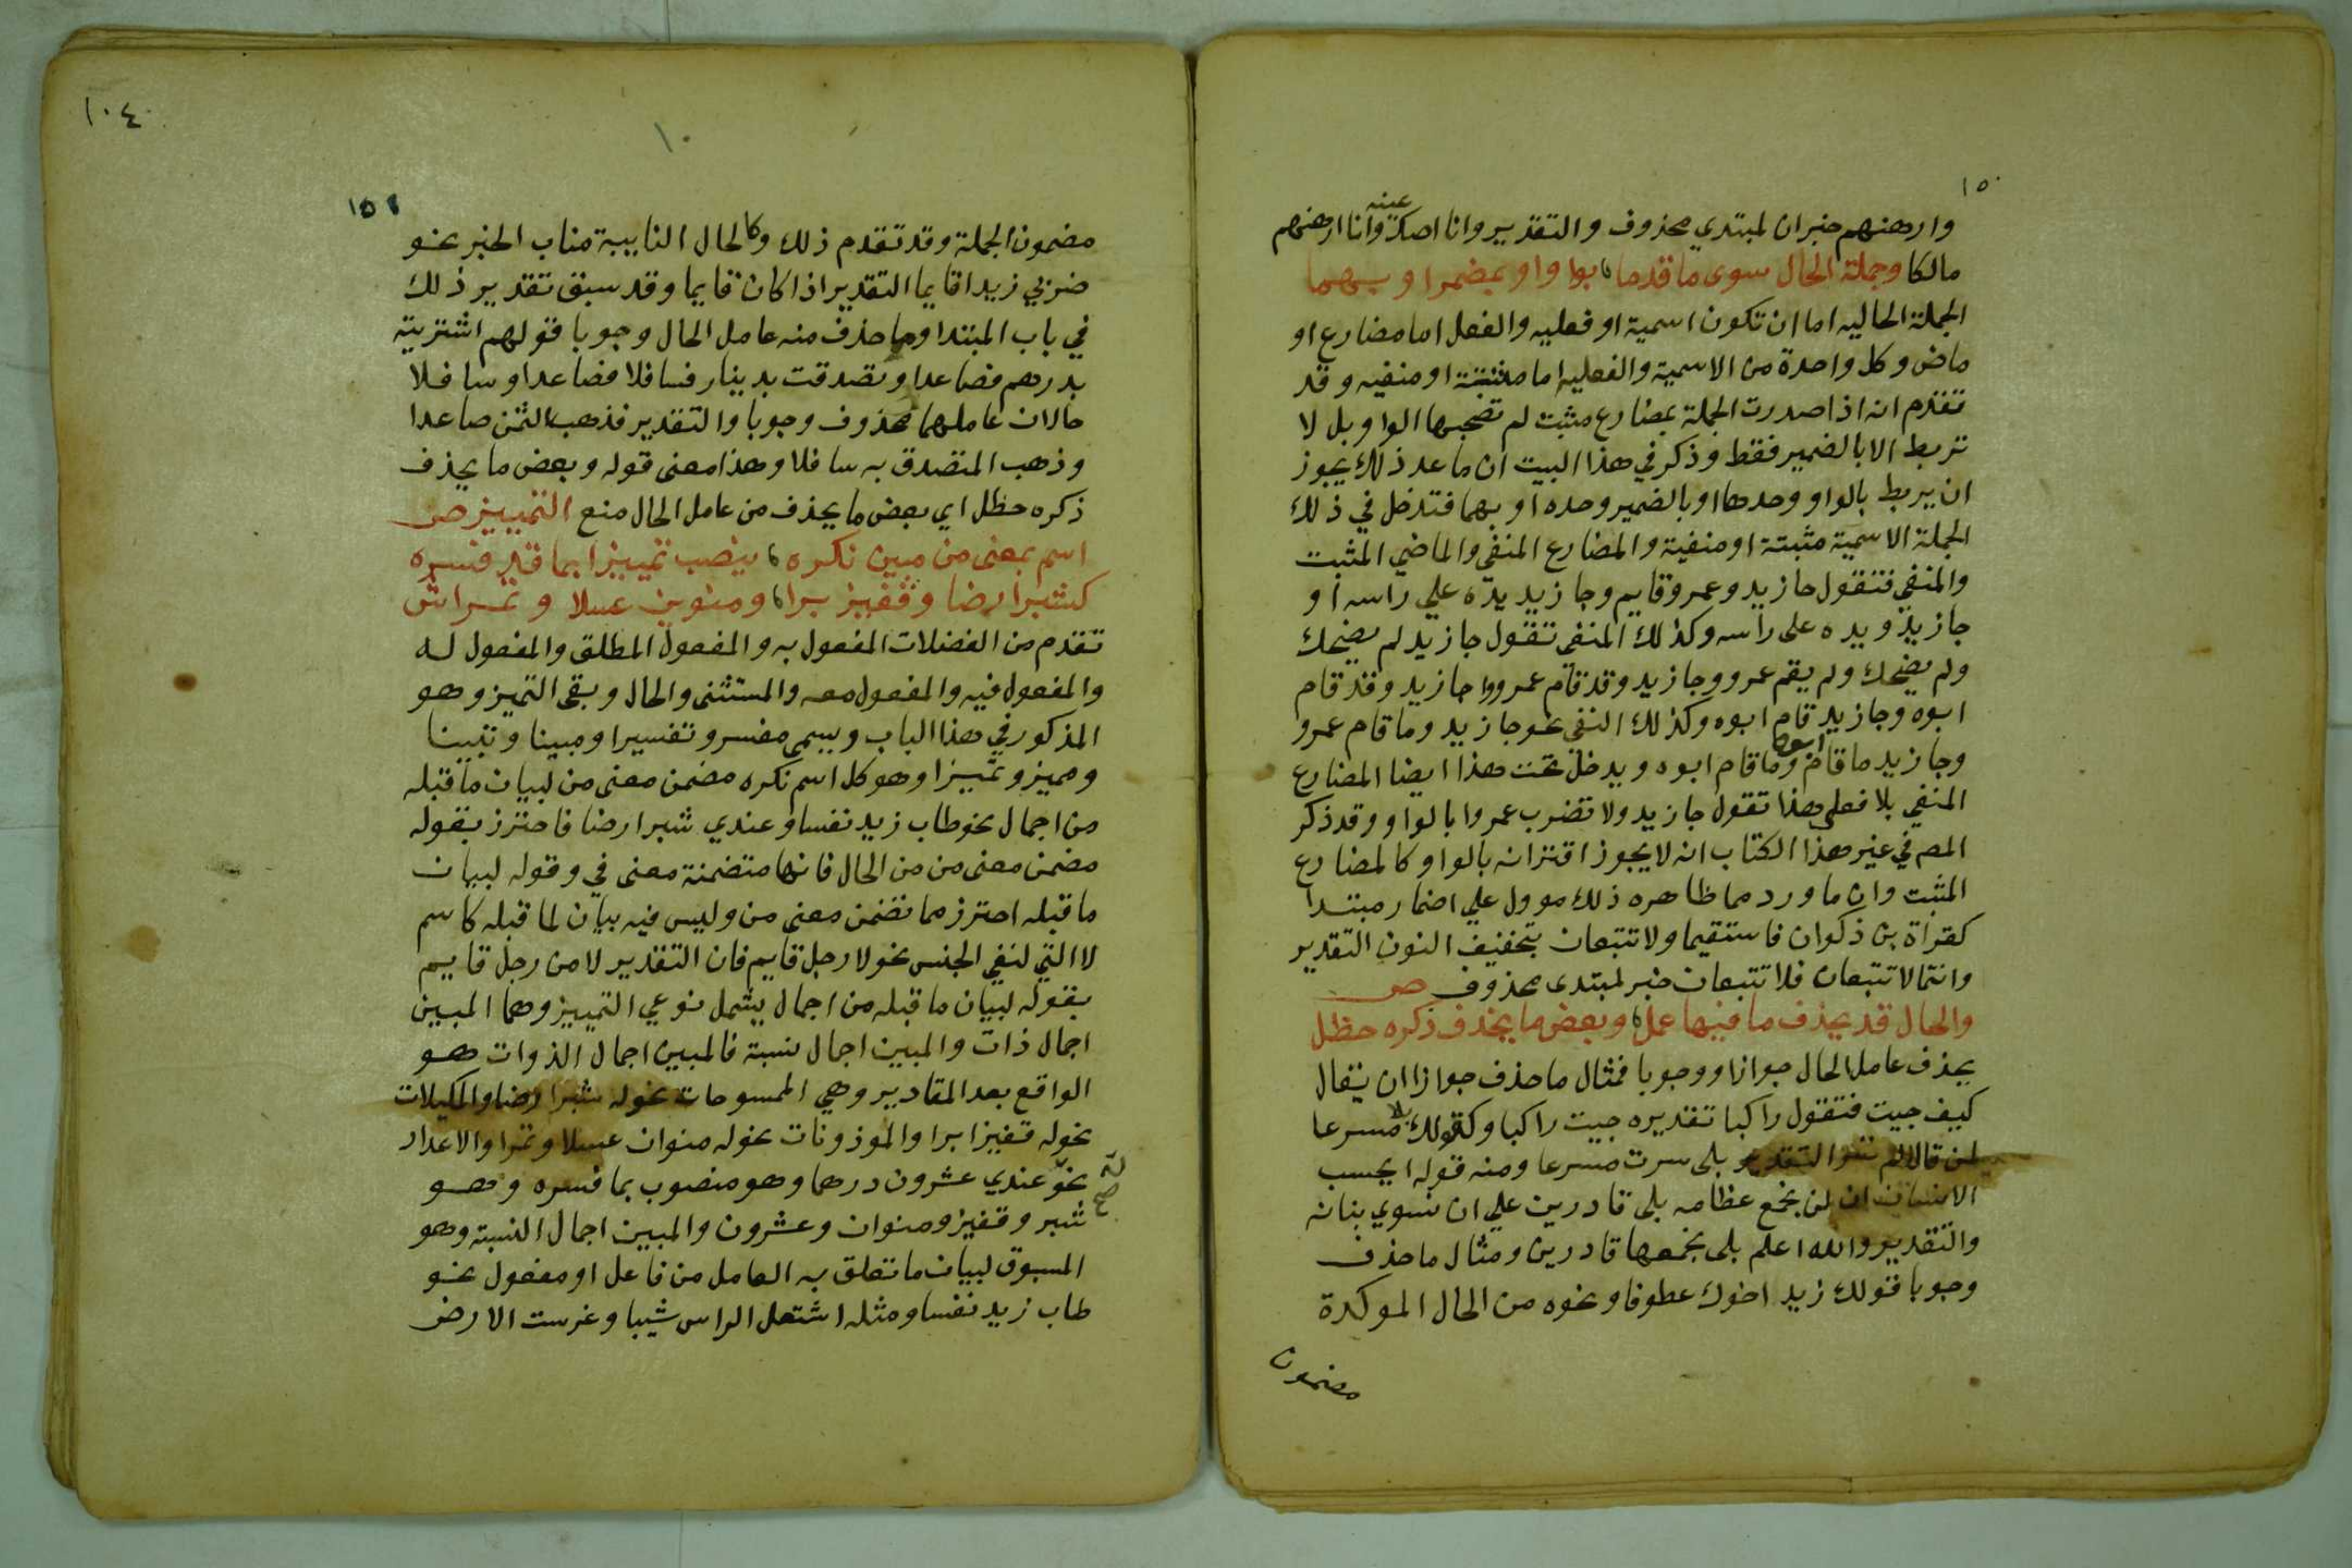 ١٥٠
وارهنهم خبران لمبتدي محذوف والتقدير وانا اصك عينه وانا ارهنهم
مالكا وجملة الحال سوى ما قدما بواو او بمضمرا وبهما
الجملة الحاليه اما ان تكون اسمية او فعليه والفعل اما مضارع او
ماض وكل واحدة من الاسمية والفعليه اما مثبتة او منفيه وقد
تقدم انه اذا صدرت الجملة بمضارع مثبت لم تصحبها الواو بل لا
تربط الا بالضمير فقط وذكر في هذا البيت ان ما عد ذلك يجوز
ان يربط بالواو وحدها او بالضمير وحده او بهما فتدخل في ذلك
الجملة الاسمية مثبتة او منفية والمضارع المنفي والماضي المثبت
والمنفي فتقول جا زيد وعمرو قايم وجا زيد يده علي راسه او
جا زيد ويده على راسه وكذلك المنفى تقول جا زيد لم يضحك
ولم يضحك ولم يقم عمرو وجا زيد وقد قام عمرو وجا زيد وقد قام
ابوه وجا زيد قام ابوه وكذلك النفى نحو جا زيد وما قام عمرو
وجا زيد ما قام ابوه وما قام ابوه ويدخل تحت هذا ايضا المضارع
المنفي بلا فعلى هذا تقول جا زيد ولا تضرب عمروا بالواو وقد ذكر
المص في غير هذا الكتاب انه لا يجوز اقترانه بالواو كالمضارع
المثبت وان ما ورد مما ظاهره ذلك موول علي اضمار مبتدا
كقراة بن ذكوان فاستقيما ولا تتبعان بتخفيف النون التقدير
وانتما لا تتبعان فلا تتبعان خبر لمبتدى محذوف ص
والحال قد يحذف ما فيها عمل وبعض ما يحذف ذكره حظل
يحذف عامل الحال جوازا ووجوبا فمثال ما حذف جوازا ان يقال
كيف جيت فتقول راكبا تقديره جيت راكبا وكقولك بلا مسرعا
لمن قال لم تسر التقدير بلى سرت مسرعا ومنه قوله ايحسب
الانسان ان لن نجمع عظامه بلى قادرين علي ان نسوي بنانه
والتقدير والله اعلم بلى نجمعها قادرين ومثال ما حذف
وجوبا قولك زيد اخوك عطوفا ونحوه من الحال الموكدة
مضمون
١٠٤
١٠
١٥١
مضمون الجملة وقد تقدم ذلك وكالحال النايبة مناب الخبر نحو
ضربي زيدا قايما التقدير اذا كان قايما وقد سبق تقدير ذلك
في باب المبتدا ومما حذف منه عامل الحال وجوبا قولهم اشتريته
بدرهم فصاعدا وتصدقت بدينار فسافلا فصاعدا وسافلا
حالان عاملهما محذوف وجوبا والتقدير فذهب الثمن صاعدا
وذهب المتصدق به سافلا وهذا معنى قوله وبعض ما يحذف
ذكره حظل اي بعض ما يحذف من عامل الحال منع التمييز ص
اسم بمعنى من مبين نكره ينصب تمييزا بما قد فسره
كشبر ارضا وقفيز برا ومنوين عسلا وتمرا ش
تقدم من الفضلات المفعول به والمفعول المطلق والمفعول له
والمفعول فيه والمفعول معه والمستثنى والحال وبقى التميز وهو
المذكور في هذا الباب ويسمى مفسر وتفسيرا ومبينا وتبيينا
ومميز وتمييزا وهو كل اسم نكره مضمن معنى من لبيان ما قبله
من اجمال نحو طاب زيد نفسا وعندي شبر ارضا فاحترز بقوله
مضمن معنى من من الحال فانها متضمنة معنى في وقوله لبيان
ما قبله احترز مما تضمن معنى من وليس فيه بيان لما قبله كاسم
لا التي لنفي الجنس نحو لا رجل قايم فان التقدير لا من رجل قايم
بقوله لبيان ما قبله من اجمال يشمل نوعي التمييز وهما المبين
اجمال ذات والمبين اجمال نسبة فالمبين اجمال الذوات هو
الواقع بعد المقادير وهي الممسوحات نحو له شبر ارضا والمكيلات
نحو له قفيز ابرا والموزونات نحو له منوان عسلا وتمرا والاعداد
نحو عندي عشرون درهما وهو منصوب بما فسره وهو
له صح
شبر وقفيز ومنوان وعشرون والمبين اجمال النسبة وهو
المسوق لبيان ما تعلق به العامل من فاعل او مفعول نحو
طاب زيد نفسا ومثله اشتعل الراس شيبا وغرست الارض